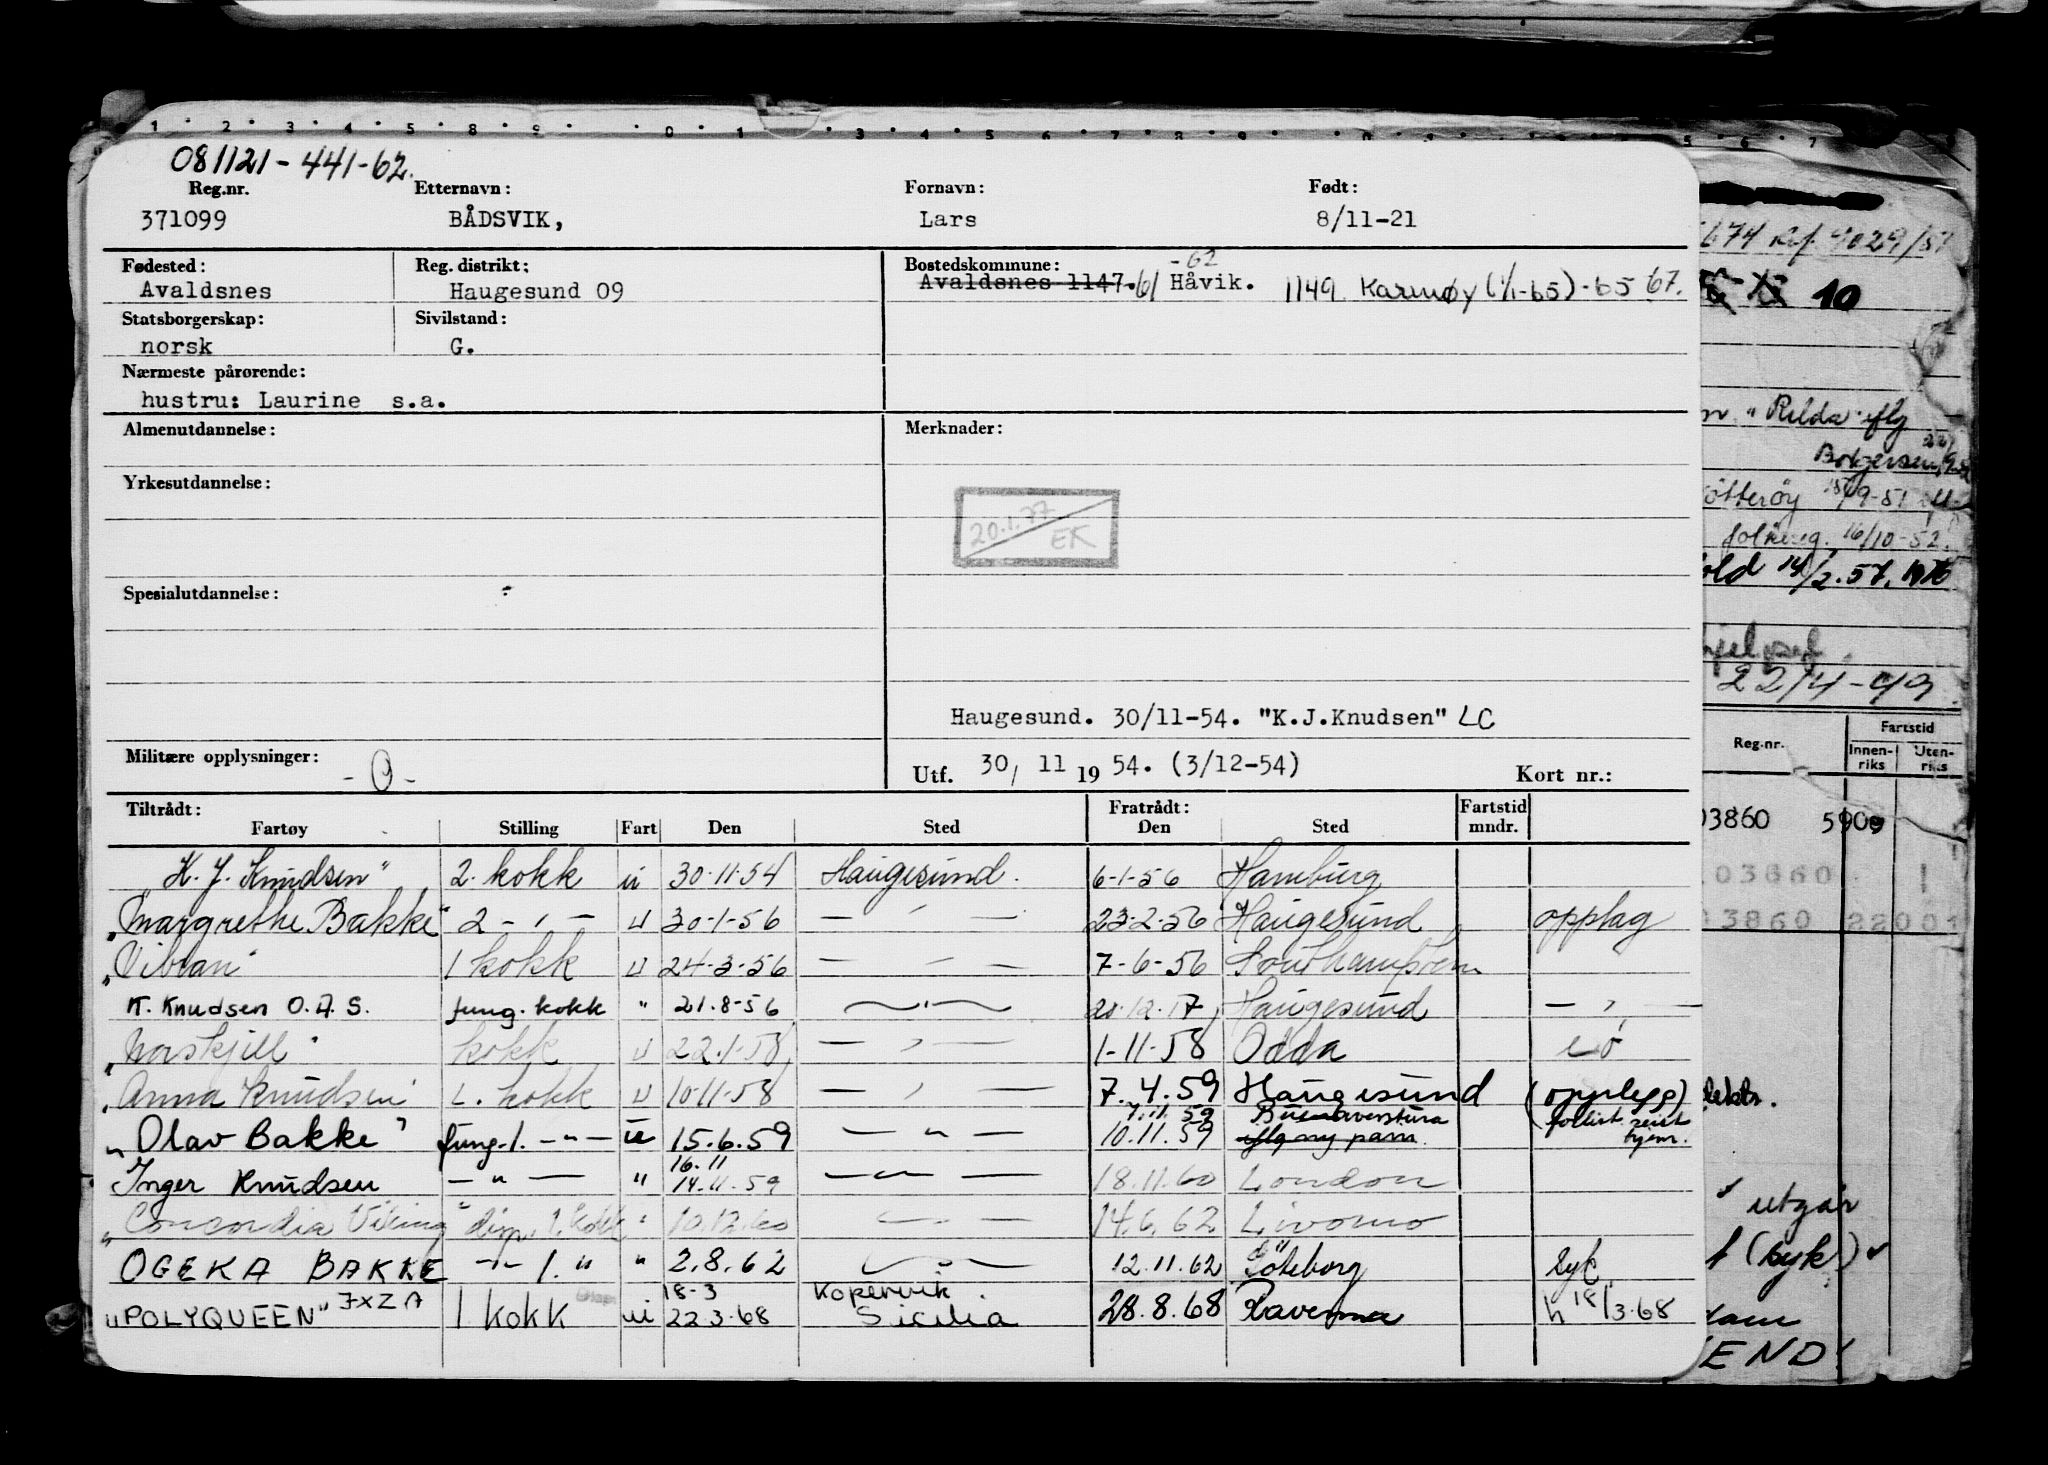 081121-441-62.
Reg.nr. Etternavn: Fornavn: Født:
371099 BÅDSVIK, Lars 8/11-21
Fødested: Reg. distrikt: Bostedskommune: -62
Avaldsnes Haugesund 09 Avaldsnes 1147.61 Håvik. 1149 Karmøy (1/1-65)-65 67.
Statsborgerskap: Sivilstand:
norsk G.
Nærmeste pårørende:
hustru: Laurine s.a.
Almenutdannelse: Merknader:
Yrkesutdannelse:
20.1.77
EK
Spesialutdannelse:
Haugesund. 30/11-54. "K.J.Knudsen" LC
Militære opplysninger: -0-
Utf. 30, 11 19 54. (3/12-54) Kort nr.:
Tiltrådt: Fratrådt: Fartstid
Fartøy Stilling Fart Den Sted Den Sted mndr.
K. J. Knudsen" 2. kokk u 30-11-54 Haugesund. 6-1-56 Hamburg
"Margrethe Bakke" 2 - , - u 30-1-56 — , — 23-2-56 Haugesund opplag
"Vibran" 1 kokk u 24-3-56 — - — 7-6-56 Southampton
K. Knudsen O.A.S. fung. kokk " 21.8-56 — " — 20.12.57 Haugesund — , —
"Norskjell" kokk u 22.1-58 — , — 1-11-58 Odda
"Anna Knudsen" 1. kokk u 10-11-58 — , — 7.4.59 Haugesund (opplegg)
1.11.59 Buenaventura
"Olav Bakke" fung. 1. -"- u 15.6.59 — " — 10.11.59 iflg ny pam.
16.11
Inger Knudsen — " — " 14.11.59 — " — 18.11.60 London
"Concordia Viking" disp. 1. kokk " 10.12.60 — " — 14.6.62 Livorno
OGEKA BAKKE -"- 1. " " 2.8.62 — " — 12.11.62 Göteborg syk
18-3 Kopervik.
"POLYQUEEN" JXZA 1 kokk u 22.3.68 Sicilia 28.8.68 Ravenna h 18/3-68
674 Ref. 4029/57
10
"Rilda" iflg
16/10-52.
22/4-49
Reg.nr. Fartstid
Innen-riks Uten-riks
03860 5909
03860
3860 22001
utgår
(syk)
END!